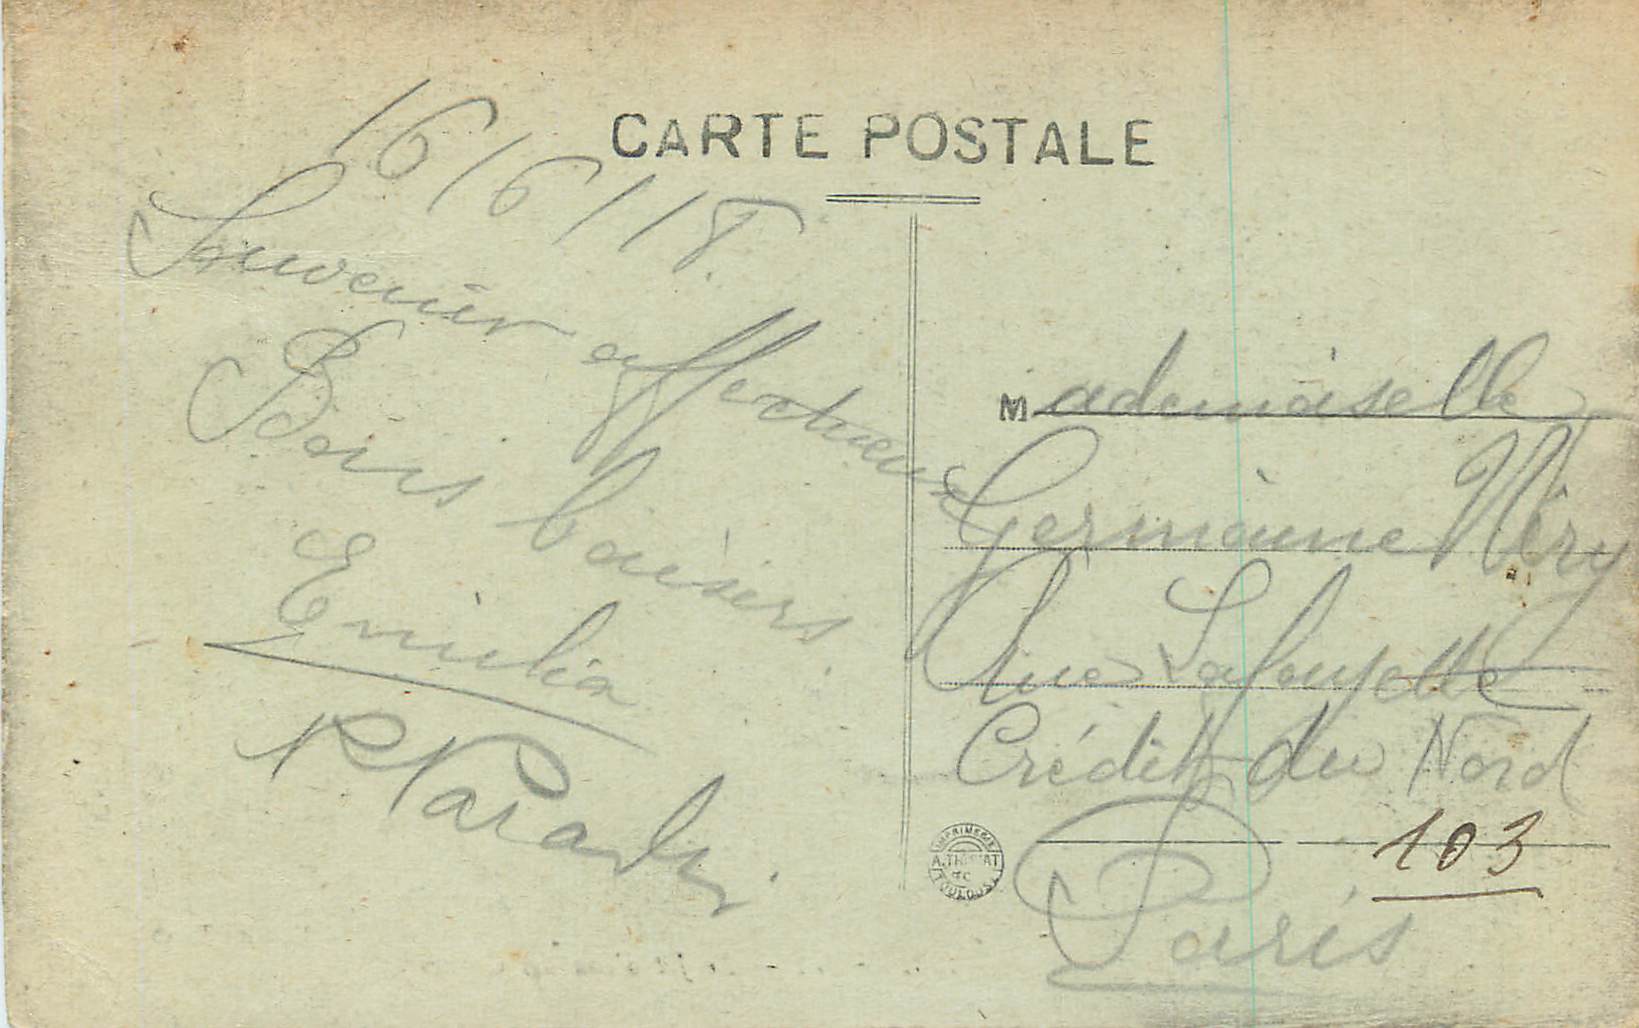 CARTE POSTALE
16/6/18.
Souvenir affectueux
Bons baisers.
Emilia
Mademoiselle
Germaine Néry
Rue Lafayette
Crédit du Nord
103
Paris
IMPRIMERIE
TOULOUSE